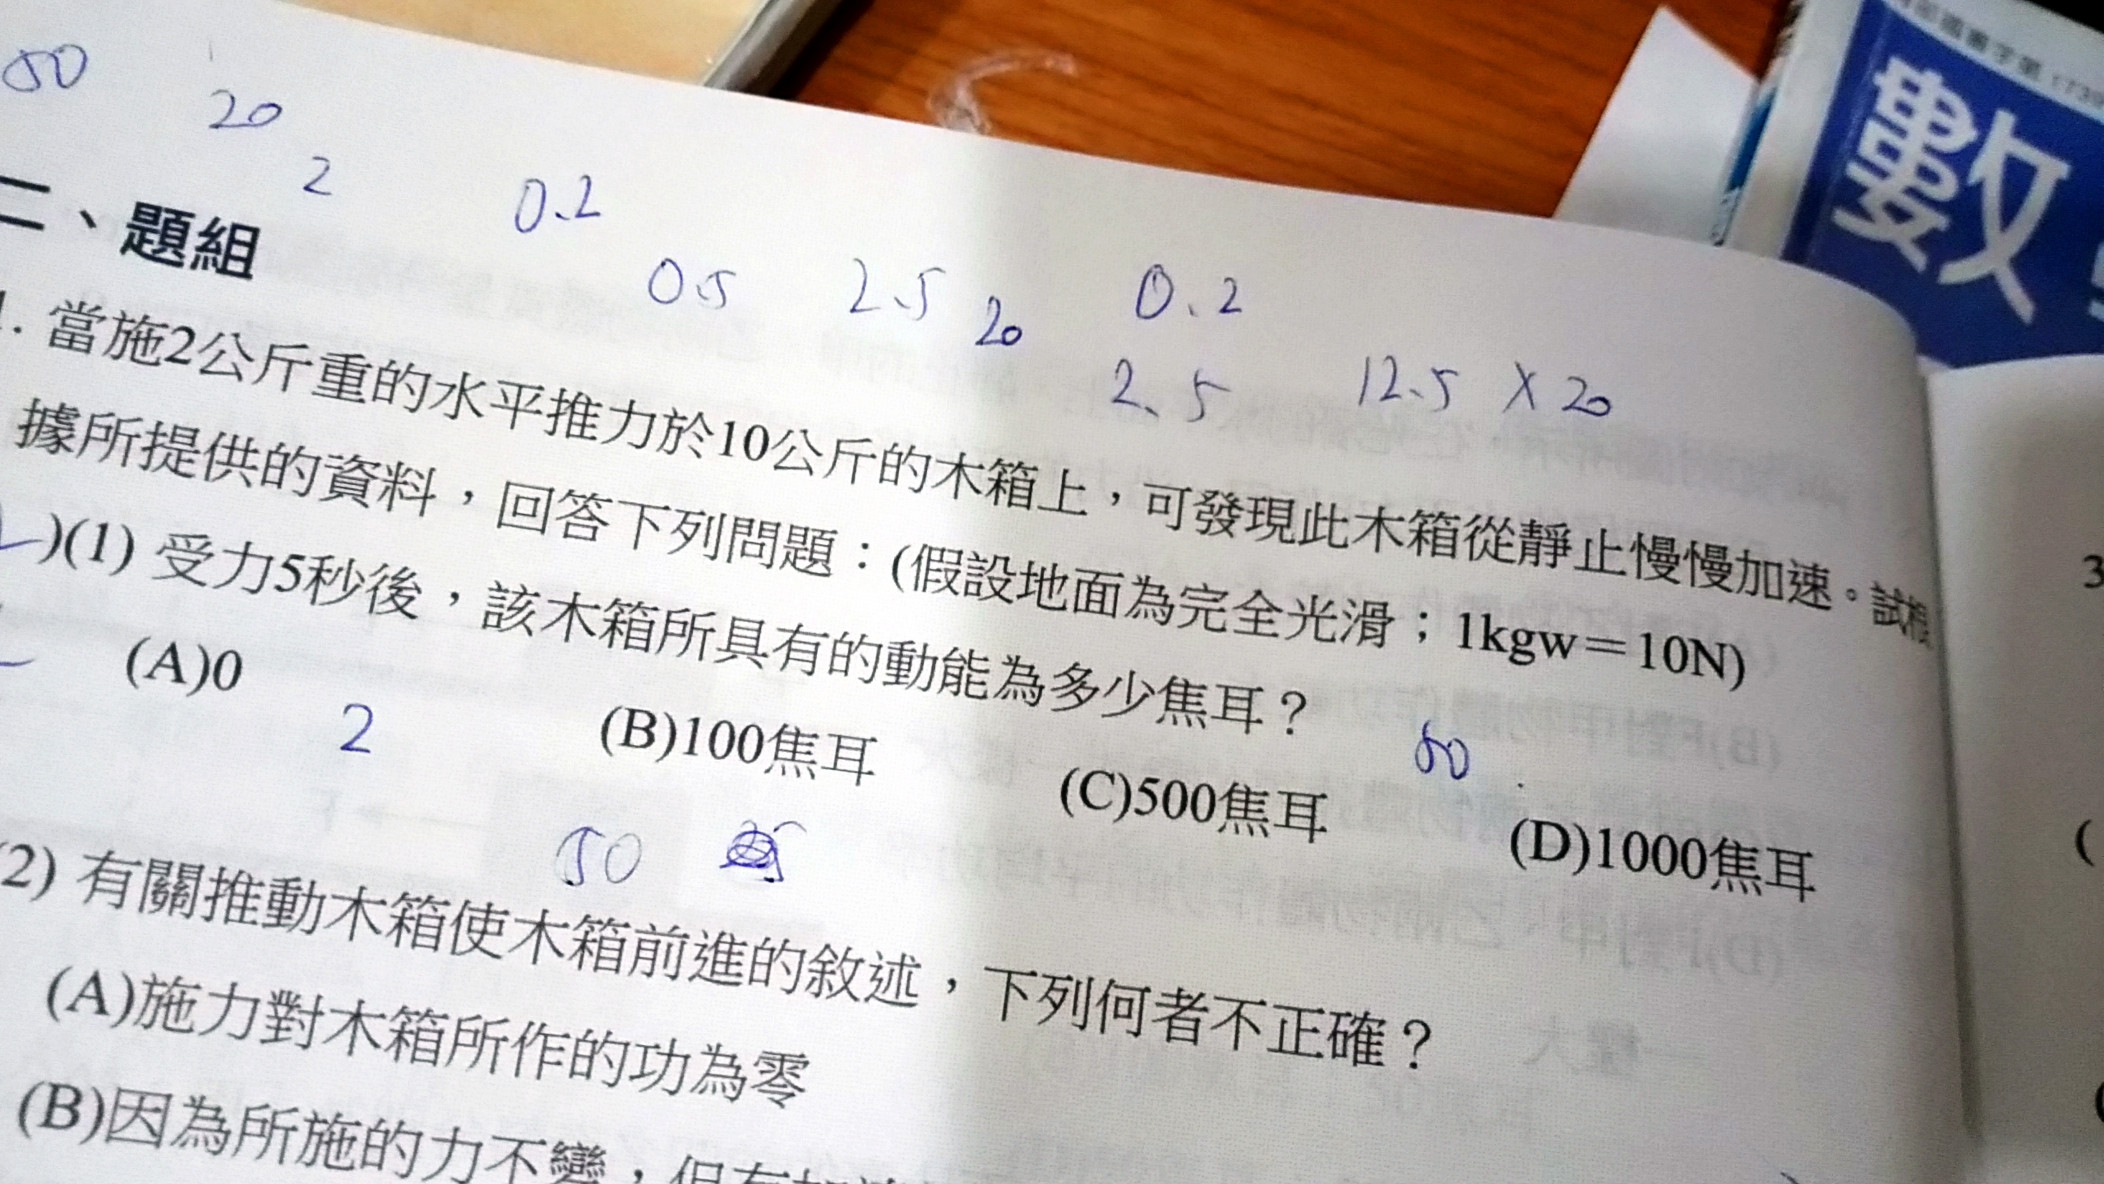 50
20
2
0.2
二、題組
0.5 2.5 20 0.2
2.5 12.5 X 20
1. 當施2公斤重的水平推力於10公斤的木箱上，可發現此木箱從靜止慢慢加速。試根
據所提供的資料，回答下列問題：(假設地面為完全光滑；1kgw=10N)
)(1) 受力5秒後，該木箱所具有的動能為多少焦耳？
(A)0 (B)100焦耳 (C)500焦耳 (D)1000焦耳
2 50
50
(2) 有關推動木箱使木箱前進的敘述，下列何者不正確？
(A)施力對木箱所作的功為零
(B)因為所施的力不變，但有加速
數
3
(